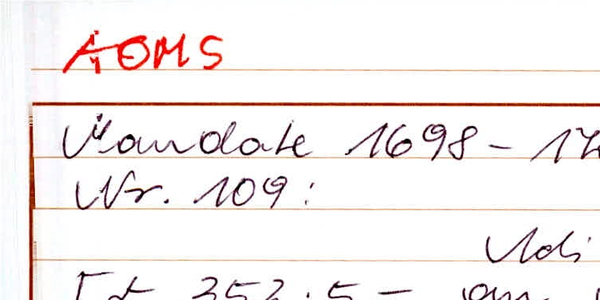 AOMS
Mandate 1698 - 17
Nr. 109:
Udi
352.5 -